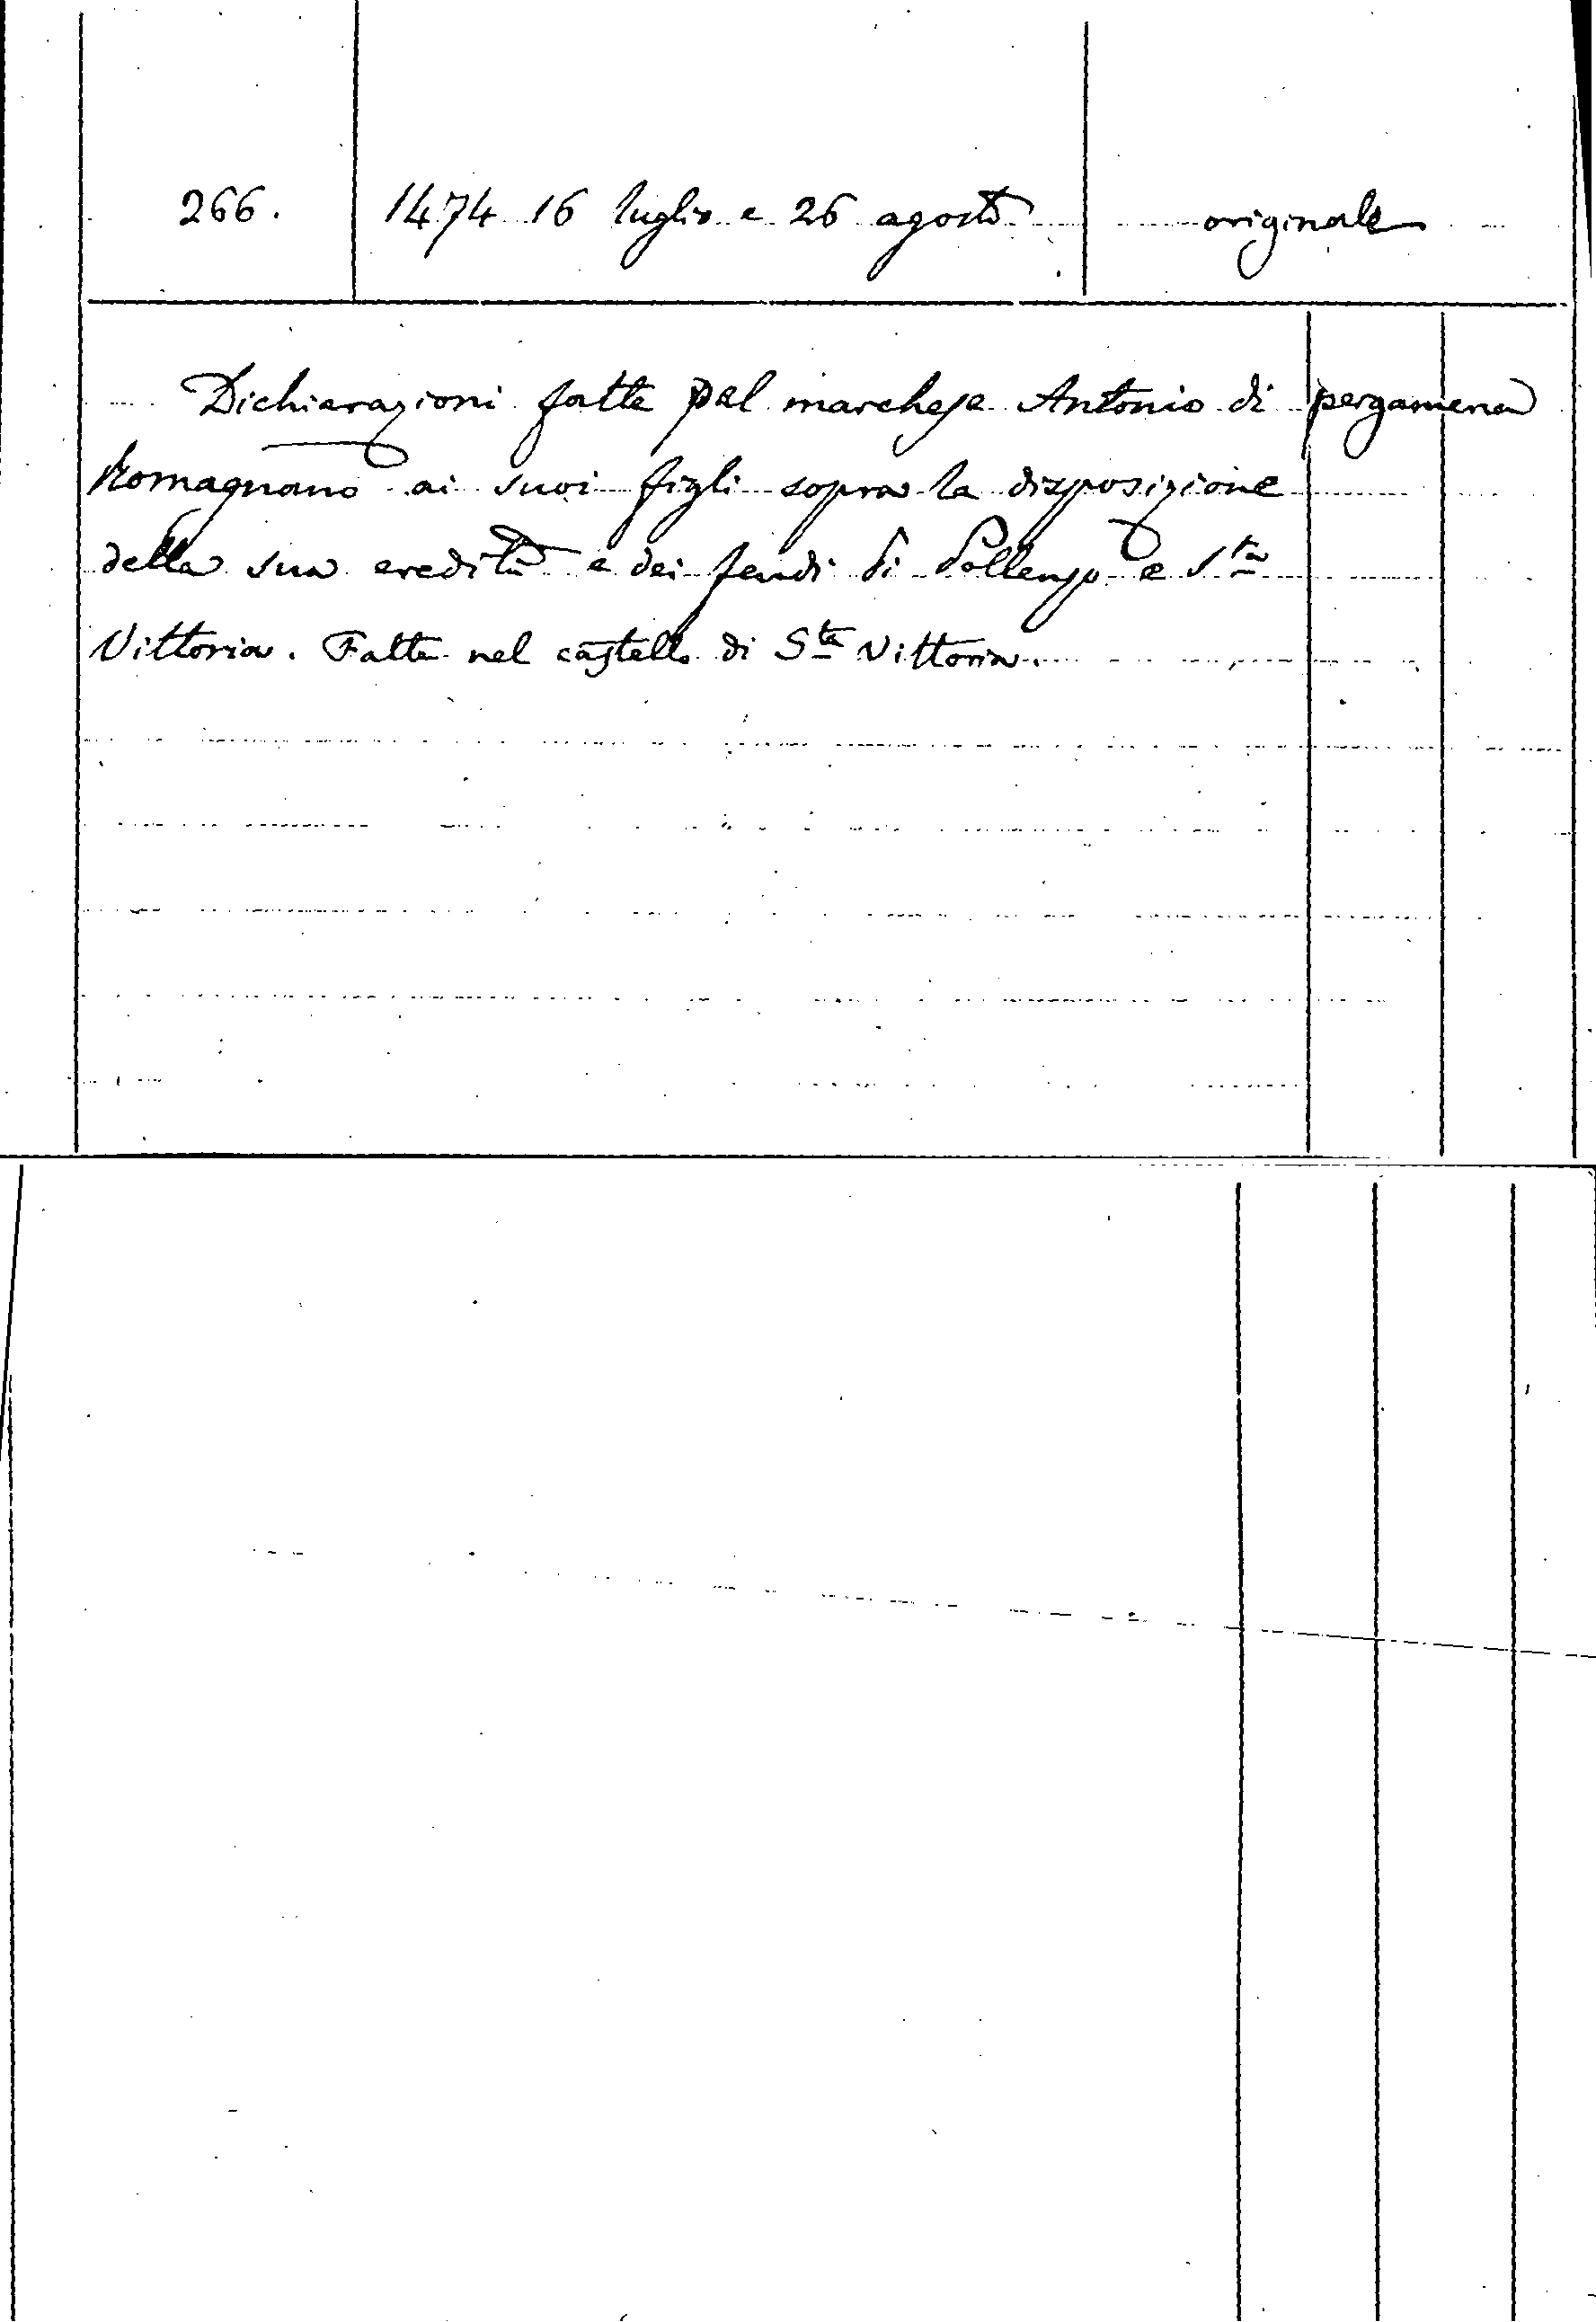 266. 1474 16 luglio e 26 agosto originale
Dichiarazioni fatte pel marchese Antonio di pergamena
Romagnano ai suoi figli sopra la disposizione
della sua eredità e dei feudi di Pollenzo e Sta
Vittoria. Fatte nel castello di Sta Vittoria.